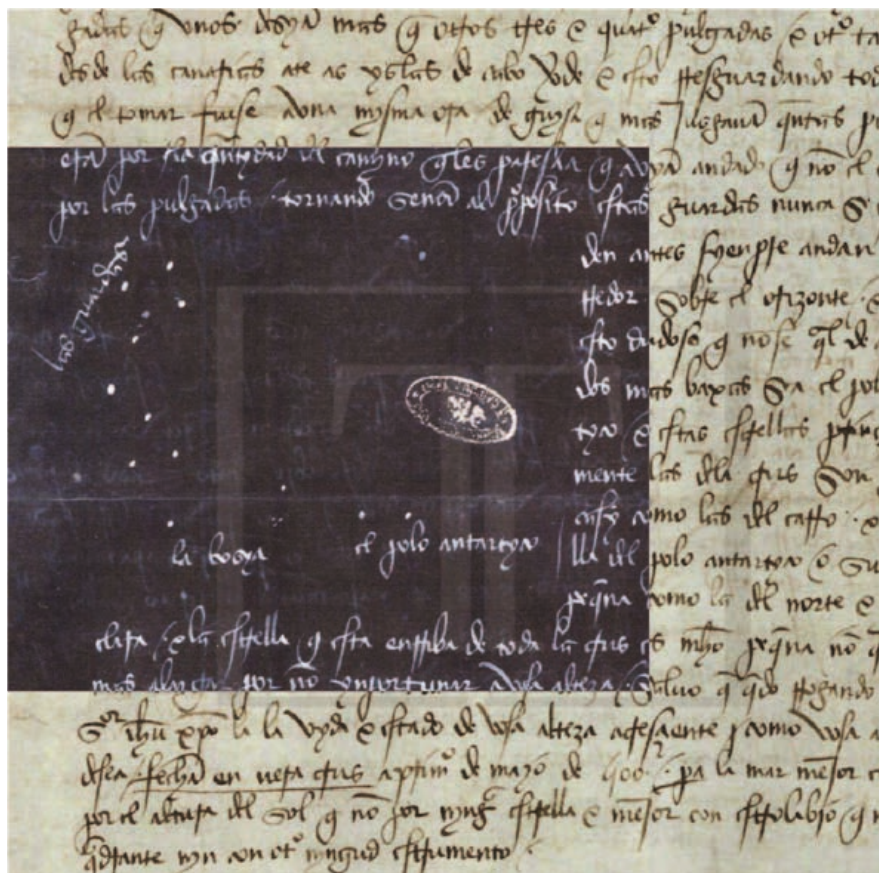 gadas q̃ unos desyã mas q̃ otros tres e quatᵒ pulgadas & otᵒ ta
desde las canarias ate as yslas de cabo vᵉde & esto rresguardando tod
q el tomar fuese a una mysma ora de guysa q mas jusgavã q̃ntas pu
erã por la q̃ntydad del camyno q les paresya q avyã andado q nõ el
por las pulgadas tornando señor al p̃posito estas guardas nunca se
den antes syenpre andan
rredor sobre el orizonte
esto dudoso q no se q̃l de
dos mas baxas sea el pol
tyco & estas estrellas prinç
mente las dela crus son
casy como las del carro
lla del polo antartyco o su
peq̃na como la del norte &
clara & la estrella q esta enrriba de toda la crus es mᵗᵒ peq̃na nõ q
mas alargar por nõ ynportunar a vᵃ alteza salvo q̃ q̃do rrogando
Sᵒʳ ihũ xpõ la vyda & estado de vosa alteza acresente como vosa a
desea fecha en vera crus a primᵒ de mayo de 500 pᵃ la mar mejor
por el altura del sol q nõ por nyng̃ estrella & mejor con estrolabio q n
q̃drante nyn con otᵒ nyngud estrumento
las guardas
la bosya
el polo antartyco